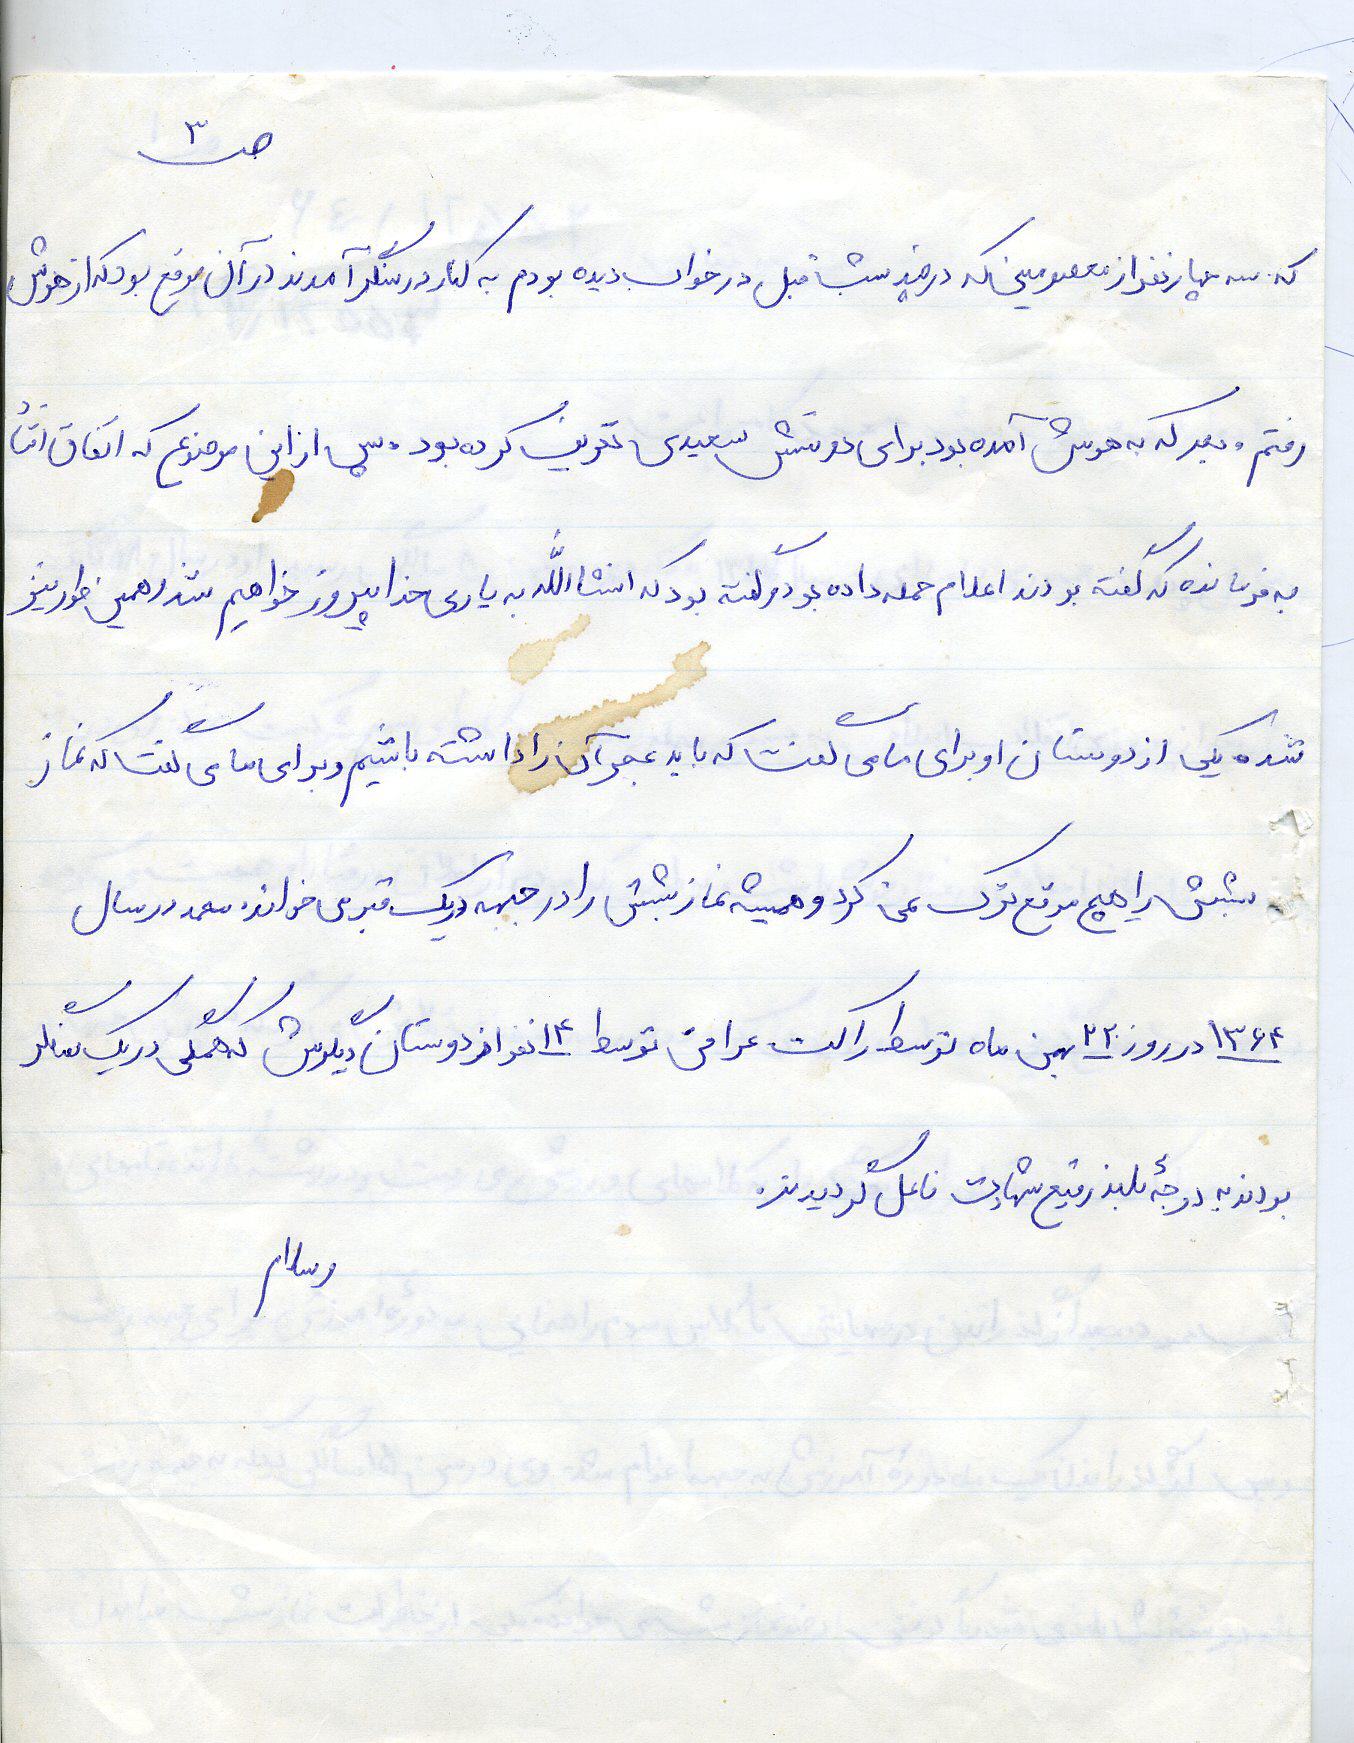 ص ۳
که سه چهار نفر از معصومینی که در چند شب قبل در خواب دیده بودم به کنار در سنگر آمدند در آن موقع بود که از هوش
رفتم و بعد که به هوش آمده بود برای دوستش سعیدی تعریف کرده بود و پس از این موضوع که اتفاق افتاد
به فرمانده که گفته بودند اعلام حمله داده بود و گفته بود که انشاالله به یاری خدا پیروز خواهیم شد و همین طور نیز
شده یکی از دوستان او برای ما می گفت که باید عجر آن را داشته باشیم و برای ما می گفت که نماز
شبش را هیچ موقع ترک نمی کرد و همیشه نماز شبش را در جبهه در یک قبر می خواند و در سال
۱۳۶۴ در روز ۲۲ بهمن ماه توسط راکت عراقی توسط ۱۴ نفر از دوستان دیگرش که همگی در یک سنگر
بودند به درجهٔ بلند رفیع شهادت نائل گردیدند.
وسلام